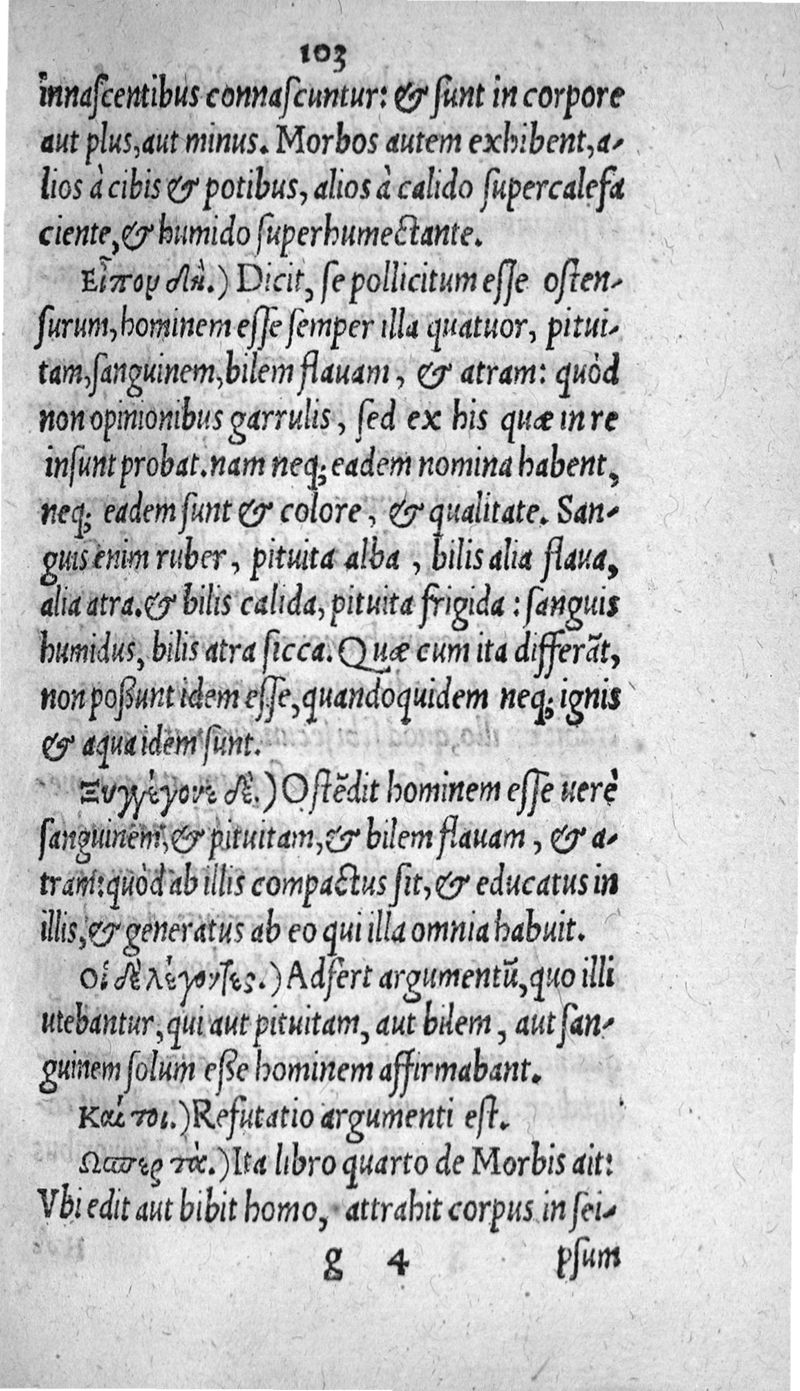 103
innaſcentibus connaſcuntur: & ſunt in corpore
aut plus, aut minus. Morbos autem exhibent, a-
lios à cibis & potibus, alios à calido ſupercalefa
ciente, & humido ſuperhumectante.
Εἶπον δὴ.) Dicit, ſe pollicitum eſſe oſten-
ſurum, hominem eſſe ſemper illa quatuor, pitui-
tam, ſanguinem, bilem flauam, & atram: quòd
non opinionibus garrulis, ſed ex his quæ in re
inſunt probat. nam neq; eadem nomina habent,
neq; eadem ſunt & colore, & qualitate. San-
guis enim ruber, pituita alba, bilis alia flaua,
alia atra. & bilis calida, pituita frigida: ſanguis
humidus, bilis atra ſicca. Quæ cum ita differāt,
non poßunt idem eſſe, quandoquidem neq; ignis
& aqua idem ſunt.
Ξυγγέγονε δὲ.) Oſtēdit hominem eſſe uerè
ſanguinem, & pituitam, & bilem flauam, & a-
tram: quòd ab illis compactus ſit, & educatus in
illis, & generatus ab eo qui illa omnia habuit.
Οἱ δὲ λέγοντες.) Adfert argumentū, quo illi
utebantur, qui aut pituitam, aut bilem, aut ſan-
guinem ſolum eße hominem affirmabant.
Καί τοι.) Refutatio argumenti eſt.
Ωσπερ τὰ.) Ita libro quarto de Morbis ait:
Vbi edit aut bibit homo, attrahit corpus in ſei-
g 4 pſum